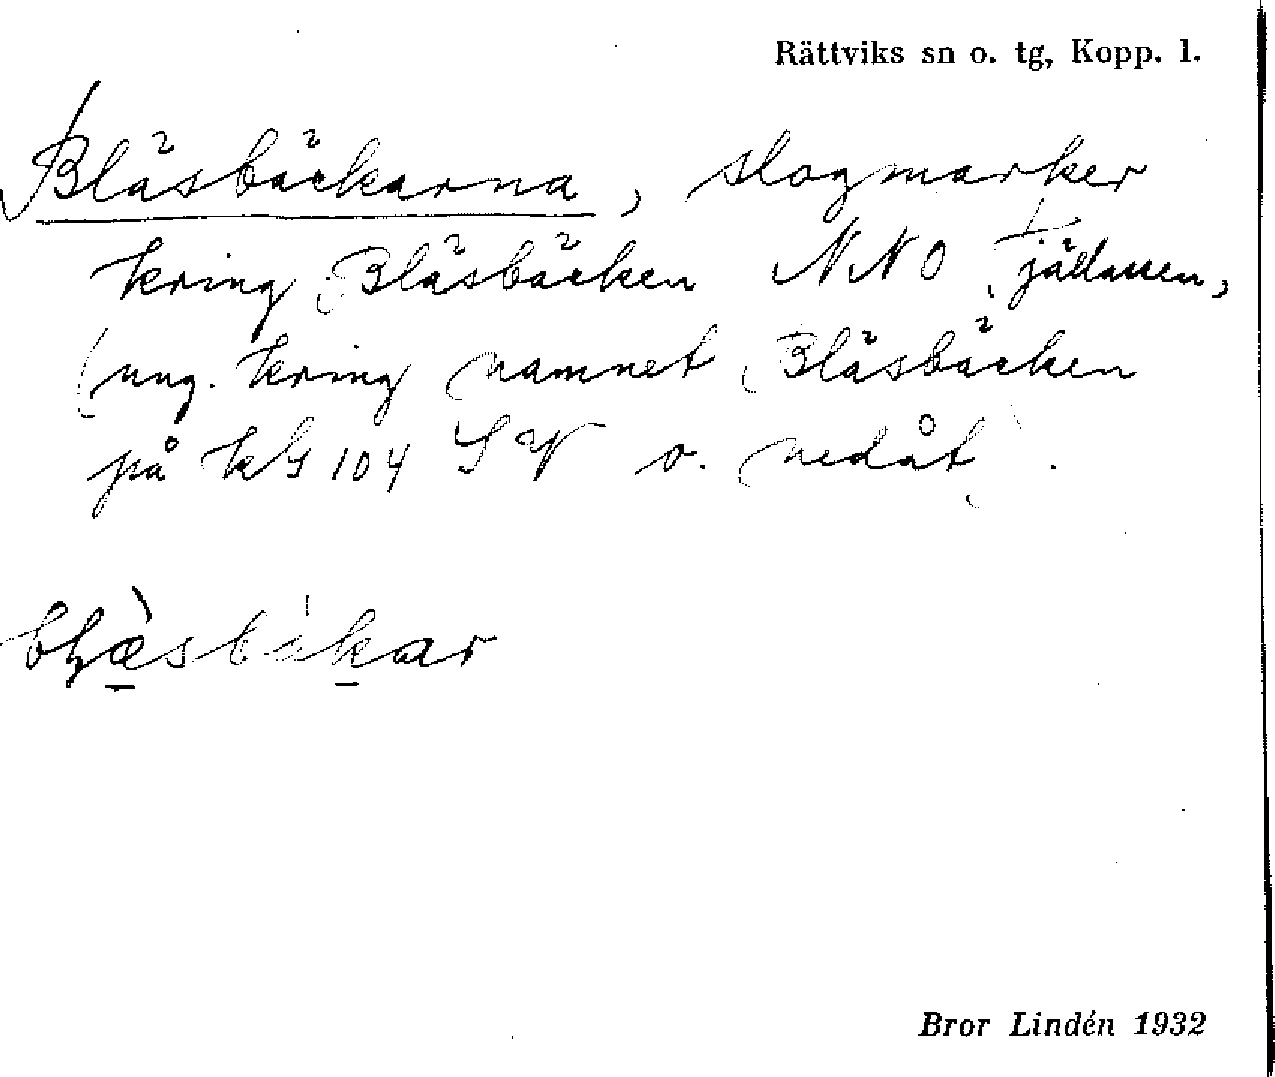 Rättviks sn o. tg, Kopp. l.
Bläsbäckarna, slogmarker
kring Bläsbäcken NNO
(ung. kring namnet Bläsbäcken
på kbl 104 SV o. nedåt).
Bror Lindén 1932